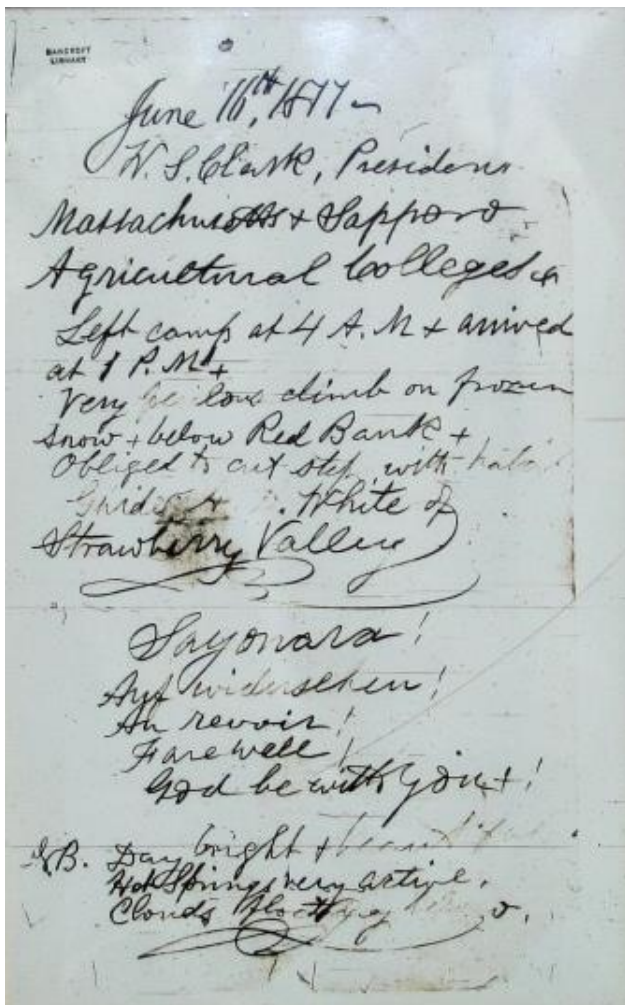 BANCROFT
LIBRARY
June 16th, 1877
W. S. Clark, President
Massachusetts + Sapporo
Agricultural Colleges
Left camp at 4 A.M + arrived
at 1 P.M +
Very climb on frozen
snow + below Red Bank +
Obliged to cut step with
Guide White of
Strawberry Valley
Sayonara!
Auf widersehen!
Au revoir!
Farewell!
God be with you + !
N.B. Day bright +
Hot Springs very active.
Clouds floating